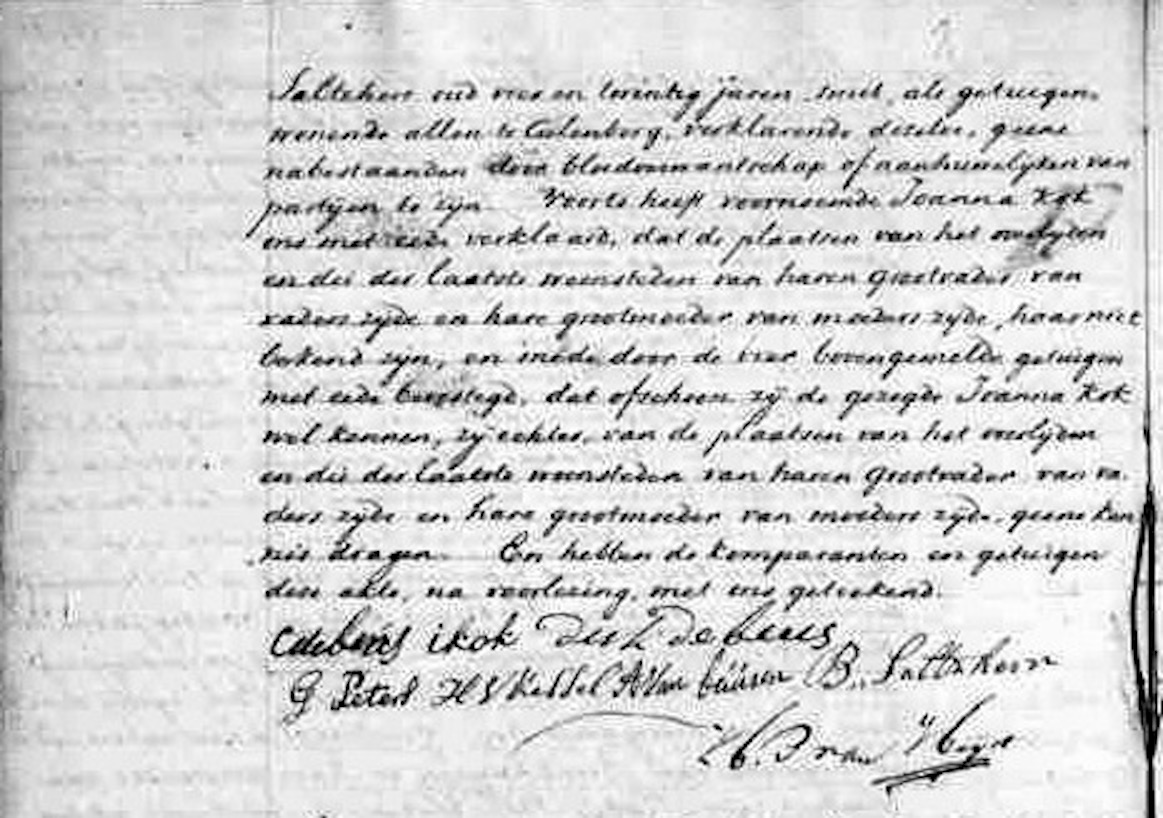 oud vier en twintig jaren, smit, als getuigen,
wonende allen te Culenborg, verklarende dezelve, geene
nabestaanden door bloedverwantschap of aanhuwelijken van
partijen te zijn. Voorts heeft voornoemde Joanna Kok
ons met eede verklaard, dat de plaatsen van het overlijden
en die der laatste woonsteden van haren grootvader van
vaders zijde en hare grootmoeder van moeders zijde, haar niet
bekend zijn, en is mede door de vier bovengemelde getuigen
met eede bevestigd, dat ofschoon zij de gezegde Joanna Kok
wel kennen, zij echter, van de plaatsen van het overlijden
en die der laatste woonsteden van haren grootvader van va-
ders zijde en hare grootmoeder van moeders zijde, geene ken
nis dragen. En hebben de komparanten en getuigen
deze akte, na voorlezing, met ons geteekend.
i kok
G Peters H S Kessel A Van Buuren B.
van